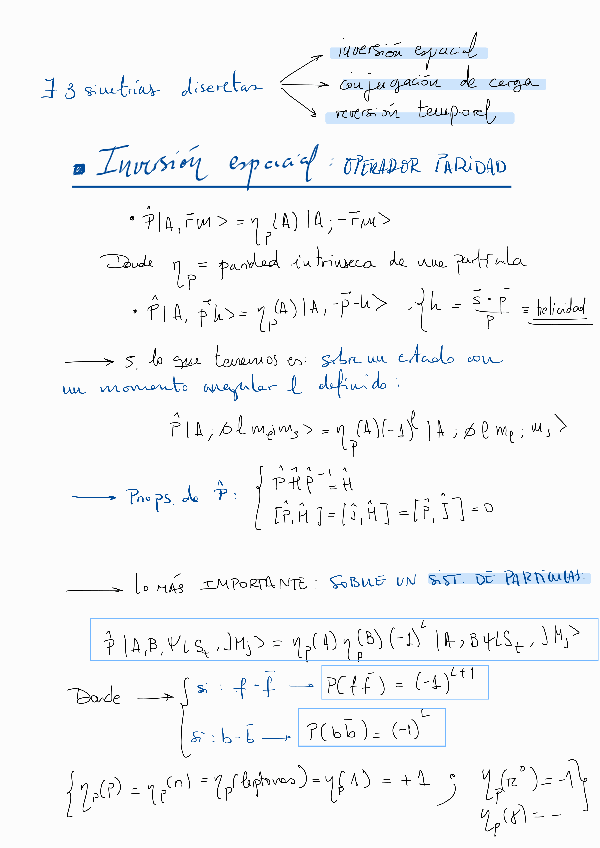 ∃ 3 simetrías discretas
inversión espacial
conjugación de carga
reversión temporal
Inversión espacial: OPERADOR PARIDAD
• P̂|A, r̄ m> = η_p(A) |A; -r̄ m>
Donde η_p = paridad intrínseca de una partícula
• P̂|A, p̄ h> = η_p(A) |A, -p̄ -h> , { h = s̄·p̄/p = helicidad
→ Si lo que tenemos es: sobre un estado con
un momento angular l definido:
P̂|A; ϕ l m_l m_s> = η_p(A)(-1)^l |A; ϕ l m_l; m_s>
→ Props. de P̂: { P̂ Ĥ P̂⁻¹ = Ĥ
[P̂,Ĥ] = [Ĵ,Ĥ] = [P̂,Ĵ] = 0
→ LO MÁS IMPORTANTE: SOBRE UN SIST. DE PARTÍCULAS:
P̂ |A,B, Ψ L S_t, J M_j> = η_p(A) η_p(B) (-1)^L |A, B Ψ L S_t, J M_j>
Donde → { si: f-f̄ → P(f f̄) = (-1)^{L+1}
si: b-b̄ → P(b b̄) = (-1)^L
{ η_p(p) = η_p(n) = η_p(leptones) = η_p(1) = +1 ; η_p(π⁰) = -1 }
η_p(γ) = -